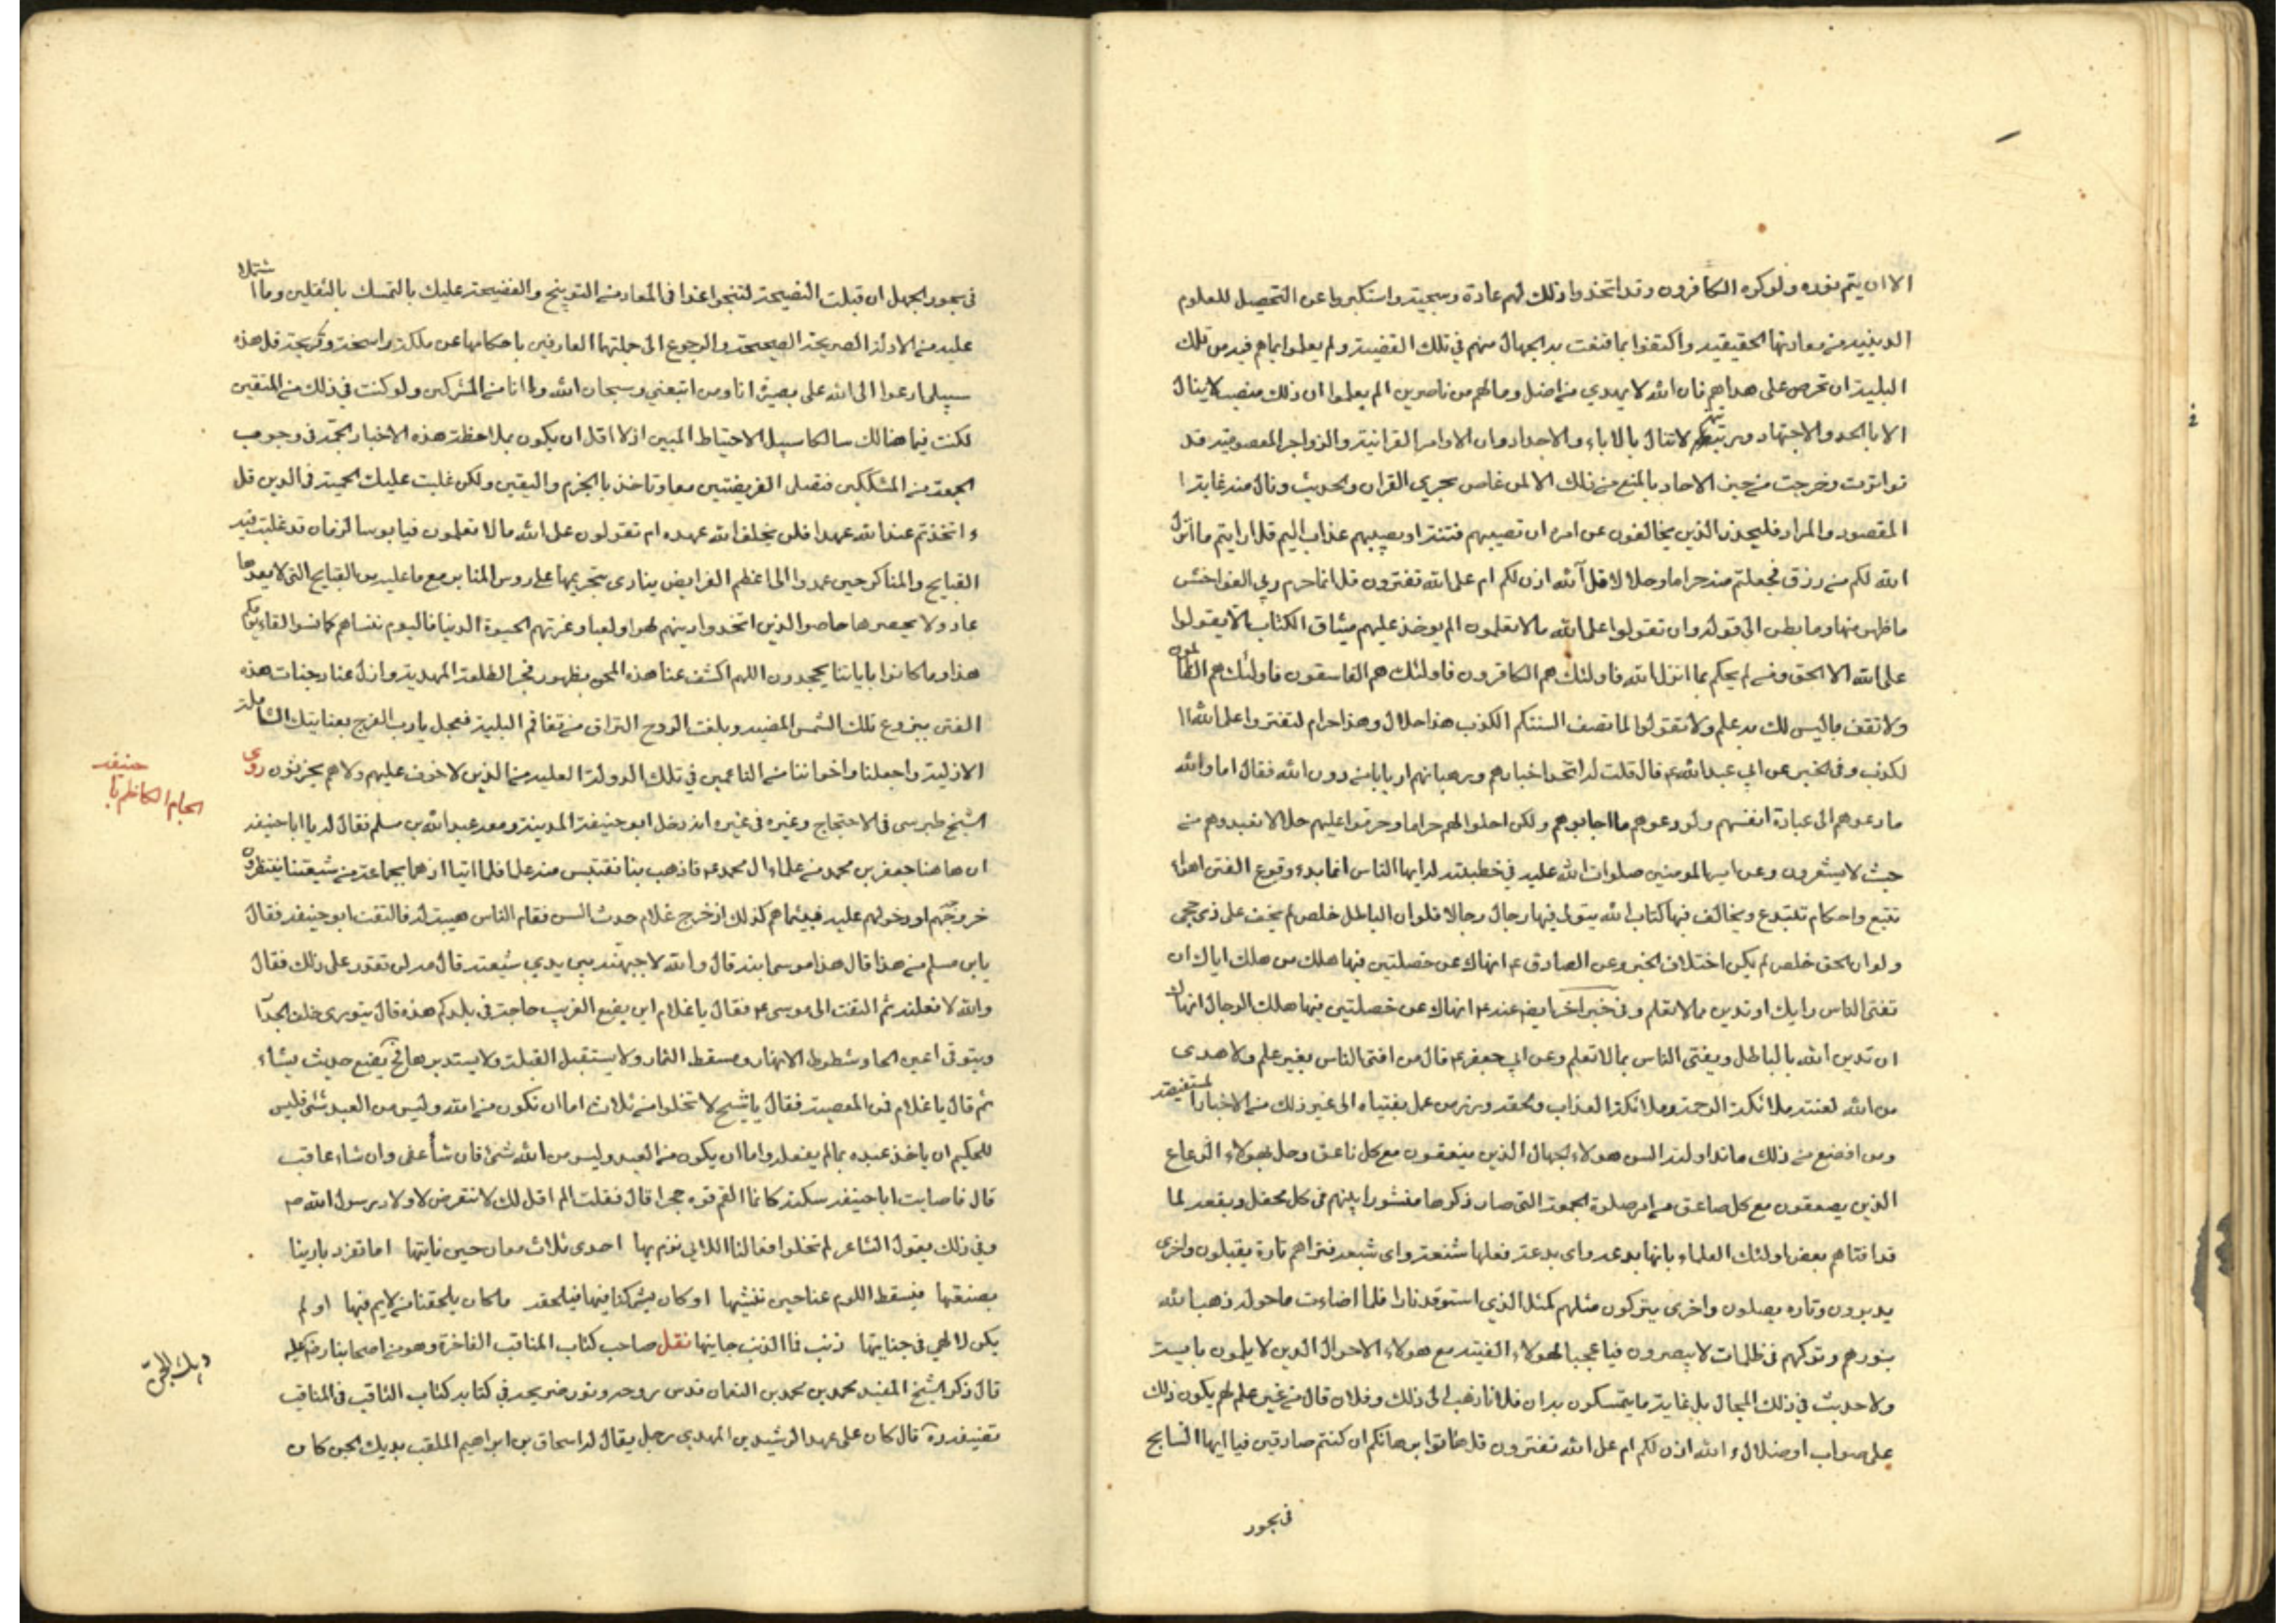 الا ان يتم نوره ولو كره الكافرون وقد اتخذوا ذلك لهم عادة وسجية واستكبروا عن التحصيل للعلوم
الدينية من معادنها الحقيقية واكتفوا بما قنعت به الجهال منهم في تلك القضية ولم يعلموا بما هم فيه من تلك
البلية ان تحرص على هداهم فان الله لا يهدي من اضل وما لهم من ناصرين الم يعلموا ان ذلك منصب لا ينال
الا بالجد والاجتهاد ومرتبة لا تنال بالاباء والاجداد وان الاوامر القرانية والزواجر المعصومية قد
تواترت وخرجت من حيز الاحاد بالمنع من ذلك الا لمن غاص بحري القران والحديث ونال منه غاية
المقصود والمراد فليحذر الذين يخالفون عن امره ان تصيبهم فتنة او يصيبهم عذاب اليم قل ارايتم ما انزل
الله لكم من رزق فجعلتم منه حراما وحلالا قل آلله اذن لكم ام على الله تفترون قل انما حرم ربي الفواحش
ما ظهر منها وما بطن الى قوله وان تقولوا على الله ما لا تعلمون الم يوخذ عليهم ميثاق الكتاب الا يقولوا
على الله الا الحق ومن لم يحكم بما انزل الله فاولئك هم الكافرون فاولئك هم الفاسقون فاولئك هم الظالمون
ولا تقف ما ليس لك به علم ولا تقولوا لما تصف السنتكم الكذب هذا حلال وهذا حرام لتفتروا على الله ا
لكذب وفي الخبر عن ابي عبد الله ع قال قلت له اتخذوا احبارهم ورهبانهم اربابا من دون الله فقال اما والله
ما دعوهم الى عبادة انفسهم ولو دعوهم ما اجابوهم ولكن احلوا لهم حراما وحرموا عليهم حلالا فعبدوهم من
حيث لا يشعرون وعن امير المومنين صلوات الله عليه في خطبة له ايها الناس انما بدء وقوع الفتن اهواء
تتبع واحكام تبتدع ويخالف فيها كتاب الله يتولى فيها رجال رجالا فلو ان الباطل خلص لم يخف على ذي حجى
ولو ان الحق خلص لم يكن اختلاف الخبر وعن الصادق ع انهاك عن خصلتين فيها هلك من هلك اياك ان
تفتي الناس برايك او تدين بما لا تعلم وفي خبر اخر ايضا عنه ع انهاك عن خصلتين فيها هلك الرجال انهاك
ان تدين الله بالباطل وتفتي الناس بما لا تعلم وعن ابي جعفر ع قال من افتى الناس بغير علم ولا هدى
من الله لعنته ملائكة الرحمة وملائكة العذاب ولحقه وزر من عمل بفتياه الى غير ذلك من الاخبار المستفيضة
ومن افضع من ذلك ما تداولته السن هولاء الجهال الذين ينعقون مع كل ناعق وجل هولاء الرعاع
الذين يصعقون مع كل صاعق من امر صلوة الجمعة التي صار ذكرها منشورا بينهم في كل محفل وبقعة لما
قد افتاهم بعض اولئك العلماء بانها بدعة واي بدعة فعلها شنعة واي شنعة فتراهم تارة يقبلون واخرى
يدبرون وتارة يصلون واخرى يتركون مثلهم كمثل الذي استوقد نارا فلما اضاءت ما حوله ذهب الله
بنورهم وتركهم في ظلمات لا يبصرون فيا عجبا لهولاء الفتية مع هولاء الاحوال الذين لا يلمون باية
ولا حديث في ذلك المجال بل غاية ما يتمسكون به ان فلانا ذهب الى ذلك وفلان قال من غير علم لهم بكون ذلك
على صواب او ضلال ء الله اذن لكم ام على الله تفترون قل هاتوا برهانكم ان كنتم صادقين فيا ايها السابح
في بحور
في بحور الجهل ان قبلت النصيحة لتنجوا غدا في المعاد من التوبيخ والفضيحة عليك بالتمسك بالثقلين وما اشتملا
عليه من الادلة الصريحة الصحيحة والرجوع الى حملتهما العارفين باحكامهما عن ملكة راسخة وقريحة قل هذه
سبيلي ادعوا الى الله على بصيرة انا ومن اتبعني وسبحان الله وما انا من المشركين ولو كنت في ذلك من المتقين
لكنت فيما هنالك سالكا سبيل الاحتياط المبين اذ لا اقل ان يكون بملاحظة هذه الاخبار الجمة في وجوب
الجمعة من المشككين فتصلي الفريضتين معا وتاخذ بالجزم واليقين ولكن غلبت عليك الحمية في الدين قل
ء اتخذتم عند الله عهدا فلن يخلف الله عهده ام تقولون على الله ما لا تعلمون فيا بوسا لزمان قد غلبت فيه
القبايح والمناكر حين عمدوا الى اعظم الفرايض ينادى بتحريمها على روس المنابر مع ما عليه من القبايح التي لا يعدها
عاد ولا يحصرها حاصر الذين اتخذوا دينهم لهوا ولعبا وغرتهم الحيوة الدنيا فاليوم ننساهم كما نسوا لقاء يومهم
هذا وما كانوا باياتنا يجحدون اللهم اكشف عنا هذه المحن بظهور فجر الطلعة المهدية وازل عنا دجنات هذه
الفتن ببزوغ تلك الشمس المضية وبلغت الروح التراق من تفاقم البلية فعجل يا رب الفرج بعنايتك الشاملة
الازلية واجعلنا واخواننا من الناعمين في تلك الدولة العلية من الذين لا خوف عليهم ولا هم يحزنون روى
الشيخ طبرسي في الاحتجاج وغيره في غيره انه دخل ابو حنيفة المدينة ومعه عبد الله بن مسلم فقال له يا ابا حنيفه
ان هاهنا جعفر بن محمد من علماء ال محمد ع فاذهب بنا نقتبس منه علما فلما اتيا اذ هما بجماعة من شيعتنا ينتظرون
خروجهم او دخولهم عليه فبينما هم كذلك اذ خرج غلام حدث السن فقام الناس هيبة له فالتفت ابو حنيفه فقال
يا بن مسلم من هذا قال هذا موسى ابنه قال والله لاجبهنه بين يدي شيعته قال مه لن تقدر على ذلك فقال
والله لافعلنه ثم التفت الى موسى ع فقال يا غلام اين يضع الغريب حاجته في بلدكم هذه قال يتورى خلف الجدار
ويتوقى اعين الجار وشطوط الانهار ومسقط الثمار ولا يستقبل القبلة ولا يستدبرها فح يضع حيث يشاء
ثم قال يا غلام فمن المعصية فقال يا شيخ لا تخلوا من ثلاث اما ان تكون من الله وليس من العبد شئ فليس
للحكيم ان ياخذ عبده بما لم يفعله واما ان يكون من العبد وليس من الله شئ فان شاء عفى وان شاء عاقب
قال فاصابت ابا حنيفه سكتة كانما القم فوه حجرا قال فقلت الم اقل لك لا تتعرض لاولاد رسول الله ص
وفي ذلك يقول الشاعر لم تخلوا افعالنا اللاتي نذم بها احدى ثلاث معان حين ناتيها اما تفرد بارينا
بصنعتها فيسقط اللوم عنا حين ننشيها او كان يشركنا فيها فيلحقه ما كان يلحقنا من لايم فيها او لم
يكن لالهي في جنايتها ذنب فما الذنب الا ذنب جانيها نقل صاحب كتاب المناقب الفاخرة وهو من اصحابنا رض
قال ذكر الشيخ المفيد محمد بن محمد بن النعمان قدس روحه ونور ضريحه في كتابه كتاب الثاقب في المناقب
تصنيفه ره قال كان على عهد الرشيد بن المهدي رجل يقال له اسحاق بن ابراهيم الملقب بديك الجن كان
الكاظم
ديك الجن